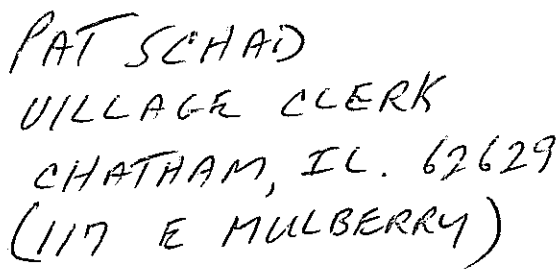 PAT SCHAD
VILLAGE CLERK
CHATHAM, IL. 62629
(117 E MULBERRY)